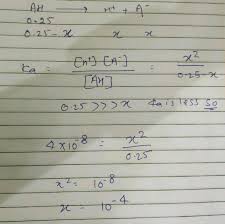 AH → H⁺ + A⁻
0.25
0.25-x x x
Ka = [H⁺] [A⁻] / [AH] = x² / 0.25-x
0.25 >>> x Ka is less so
4×10⁻⁸ = x² / 0.25
x² = 10⁻⁸
x = 10⁻⁴